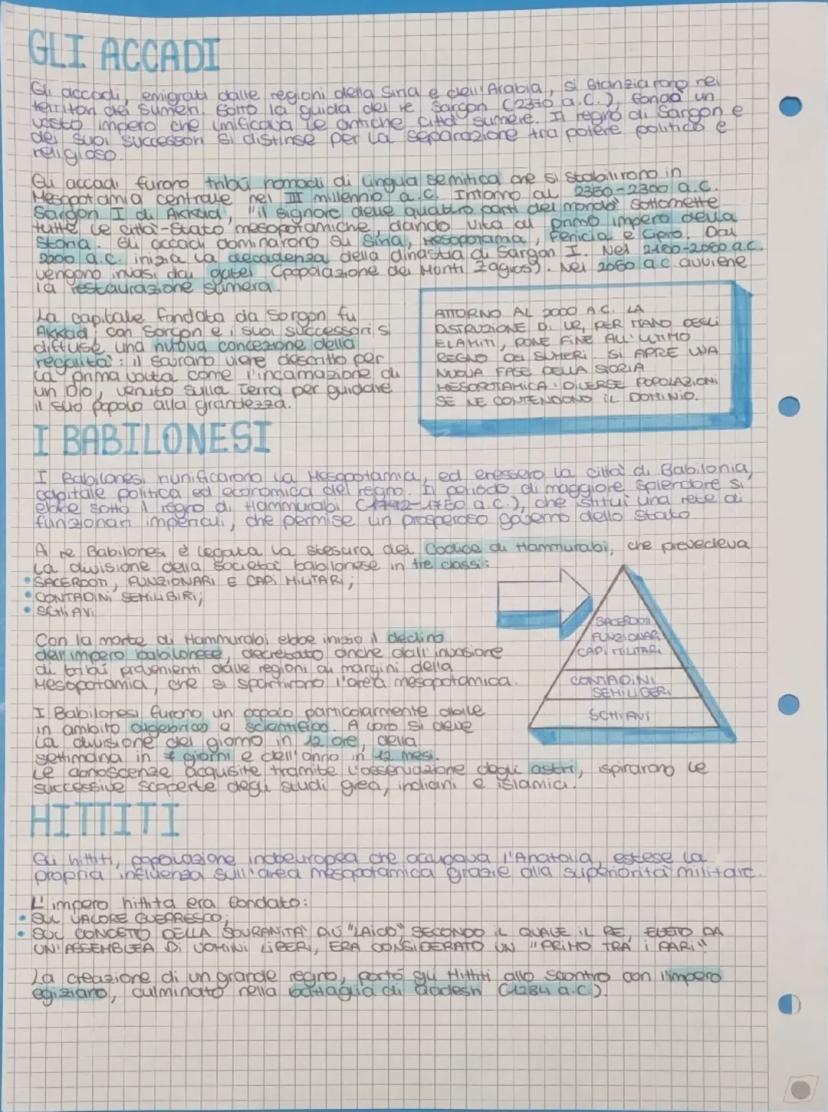 GLI ACCADI
Gli accadi, emigrati dalle regioni della Siria e dell'Arabia, si stanziarono nei
territori dei sumeri. Sotto la guida del re Sargon (2370 a.C.), fondò un
vasto impero che unificava le antiche città sumere. Il regno di Sargon e
dei suoi successori si distinse per la separazione tra potere politico e
religioso.
Gli accadi furono tribù nomadi di lingua semitica che si stabilirono in
Mesopotamia centrale nel III millennio a.C. Intorno al 2350-2300 a.C.
Sargon I di Akkad, "il signore delle quattro parti del mondo" sottomette
tutte le città-stato mesopotamiche, dando vita al primo impero della
storia. Gli accadi dominarono su Siria, Mesopotamia, Fenicia e Cipro. Dal
2200 a.C. inizia la decadenza della dinastia di Sargon I. Nel 2100-2060 a.C.
vengono invasi dai gutei (popolazione dei Monti Zagros). Nel 2060 a.C avviene
la restaurazione sumera.
La capitale fondata da Sargon fu
Akkad, con Sargon e i suoi successori s
diffuse una nuova concezione della
regalità: il sovrano viene descritto per
la prima volta come l'incarnazione di
un Dio, venuto sulla Terra per guidare
il suo popolo alla grandezza.
ATTORNO AL 2000 A.C. LA
DISTRUZIONE DI UR, PER MANO DEGLI
ELAMITI, PONE FINE ALL'ULTIMO
REGNO DEI SUMERI. SI APRE UNA
NUOVA FASE DELLA STORIA
MESOPOTAMICA: DIVERSE POPOLAZIONI
SE NE CONTENDONO IL DOMINIO.
I BABILONESI
I Babilonesi riunificarono la Mesopotamia, ed eressero la città di Babilonia,
capitale politica ed economica del regno. Il periodo di maggiore splendore si
ebbe sotto il regno di Hammurabi (1792-1750 a.C.), che istituì una rete di
funzionari imperiali, che permise un prosperoso governo dello Stato
A re Babilonesi è legata la stesura del Codice di Hammurabi, che prevedeva
la divisione della società babilonese in tre classi:
• SACERDOTI, FUNZIONARI E CAPI MILITARI;
• CONTADINI SEMILIBIRI;
• SCHIAVI
SACERDOTI
FUNZIONARI
CAPI MILITARI
CONTADINI
SEMILIBERI
SCHIAVI
Con la morte di Hammurabi ebbe inizio il declino
dell'impero babilonese, decretato anche dall'invasione
di tribù provenienti dalle regioni ai margini della
Mesopotamia, che si spartirono l'area mesopotamica.
I Babilonesi furono un popolo particolarmente abile
in ambito algebrico e scientifico. A loro si deve
la divisione del giorno in 12 ore, della
settimana in 7 giorni e dell'anno in 12 mesi.
Le conoscenze acquisite tramite l'osservazione degli astri, ispirarono le
successive scoperte degli studi greci, indiani e islamici.
HITTITI
Gli hittiti, popolazione indoeuropea che occupava l'Anatolia, estese la
propria influenza sull'area mesopotamica grazie alla superiorità militare.
L'impero hittita era fondato:
• SUL VALORE GUERRESCO;
• SUL CONCETTO DELLA SOVRANITÀ PIÙ "LAICO" SECONDO IL QUALE IL RE, ELETTO DA
UN'ASSEMBLEA DI UOMINI LIBERI, ERA CONSIDERATO UN "PRIMO TRA I PARI"
La creazione di un grande regno, portò gli Hittiti allo scontro con l'impero
egiziano, culminato nella battaglia di Qadesh (1284 a.C).